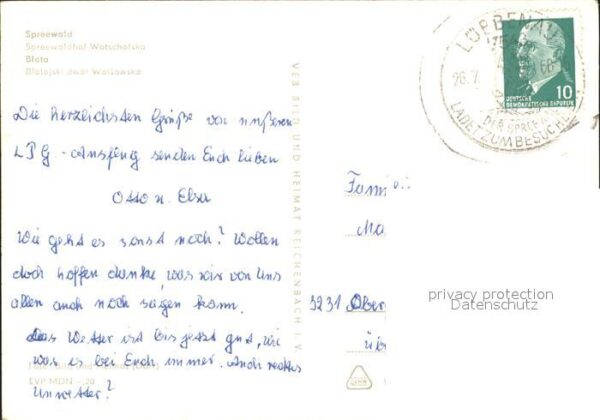 Spreewald
Spreewaldhof Wotschofska
Błota
Błotojski dwór Wótšowska
LÜBBENAU
754
26.7. 66
DER SPREEWALD
LADET ZUM BESUCHE
10
DEUTSCHE
DEMOKRATISCHE REPUBLIK
Die herzlichsten Grüße von unseren
LPG-Ausflug senden Euch lieben
Otto u. Elsa
Wie geht es sonst noch? Wollen
doch hoffen danke, was wir von Uns
allen auch noch sagen kann.
Das Wetter ist bis jetzt gut, wie
war es bei Euch immer. Auch rechtes
Unwetter?
EVP MDN -,20
VEB BILD UND HEIMAT REICHENBACH I. V.
Famili
Ma
5231 Ober
üb
privacy protection
Datenschutz